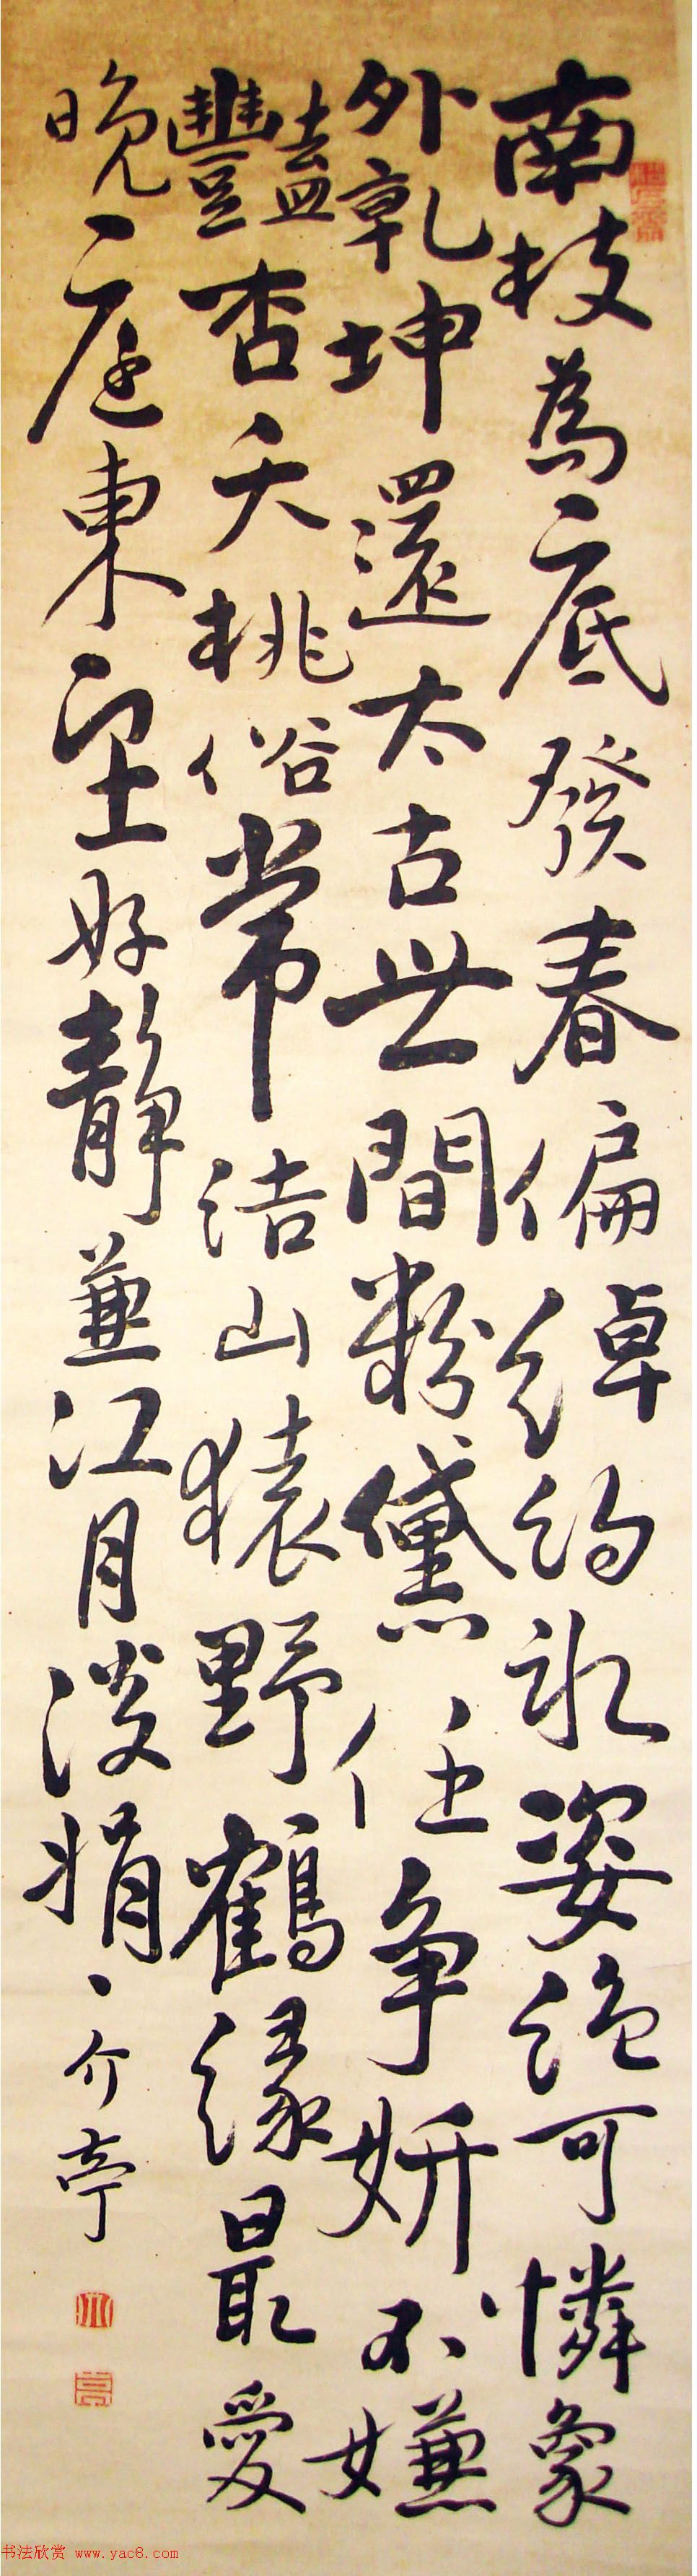 南枝為底發春偏綽約冰姿絕可憐象
外乾坤還太古世間粉黛任争妍不嫌
豔杏夭桃俗常結山猿野鶴緣最愛
晚庭東望好靜兼江月淡娟丶
介亭
书法欣赏 www.yac8.com